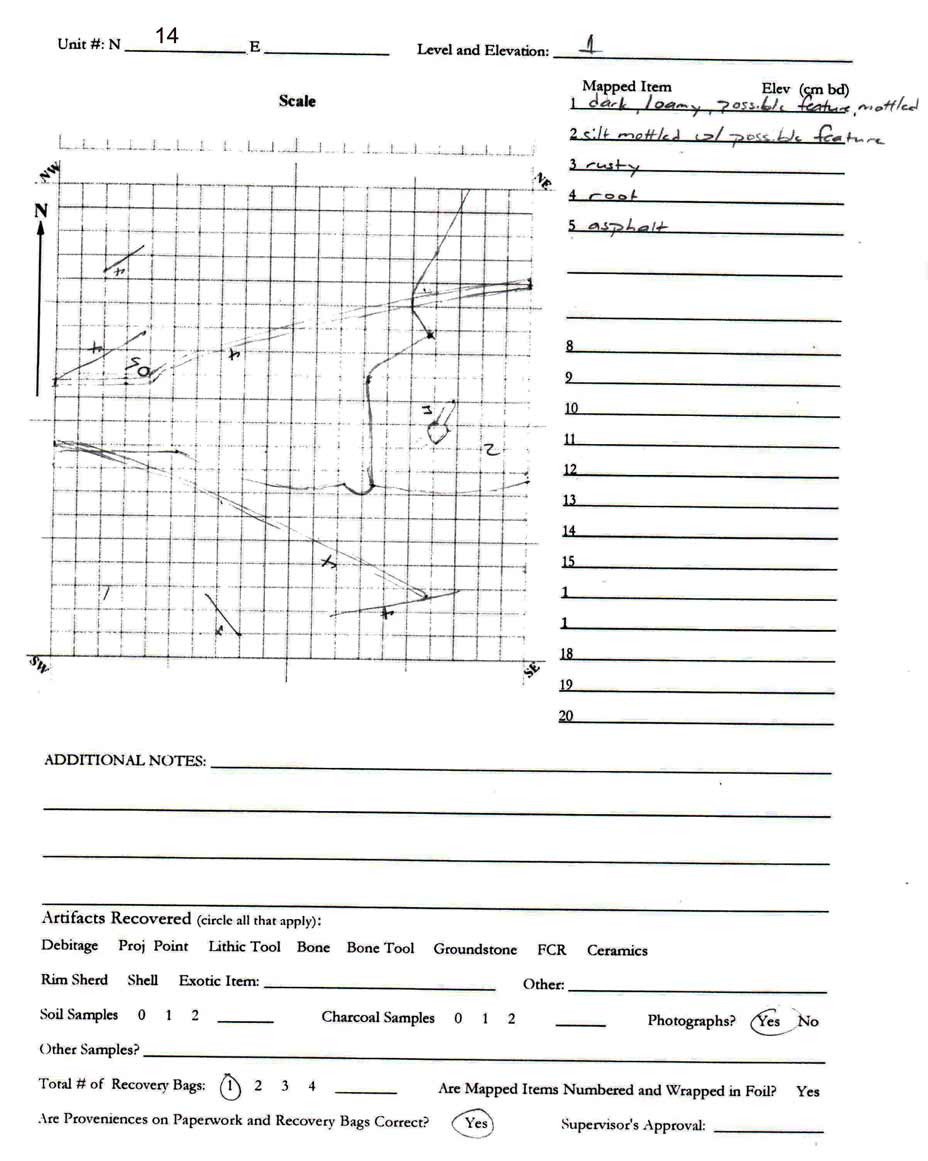 Unit #: N 14 E Level and Elevation: 1
Scale
Mapped Item Elev (cm bd)
1 dark, loamy, possible feature, mottled
2 silt mottled w/ possible feature
3 rusty
4 root
5 asphalt
8
9
10
11
12
13
14
15
1
1
18
19
20
NW
NE
N
4
4
4
5
3
2
4
1
4
4
SW
SE
ADDITIONAL NOTES:
Artifacts Recovered (circle all that apply):
Debitage Proj Point Lithic Tool Bone Bone Tool Groundstone FCR Ceramics
Rim Sherd Shell Exotic Item: Other:
Soil Samples 0 1 2 Charcoal Samples 0 1 2 Photographs? Yes No
Other Samples?
Total # of Recovery Bags: 1 2 3 4 Are Mapped Items Numbered and Wrapped in Foil? Yes
Are Proveniences on Paperwork and Recovery Bags Correct? Yes Supervisor's Approval: